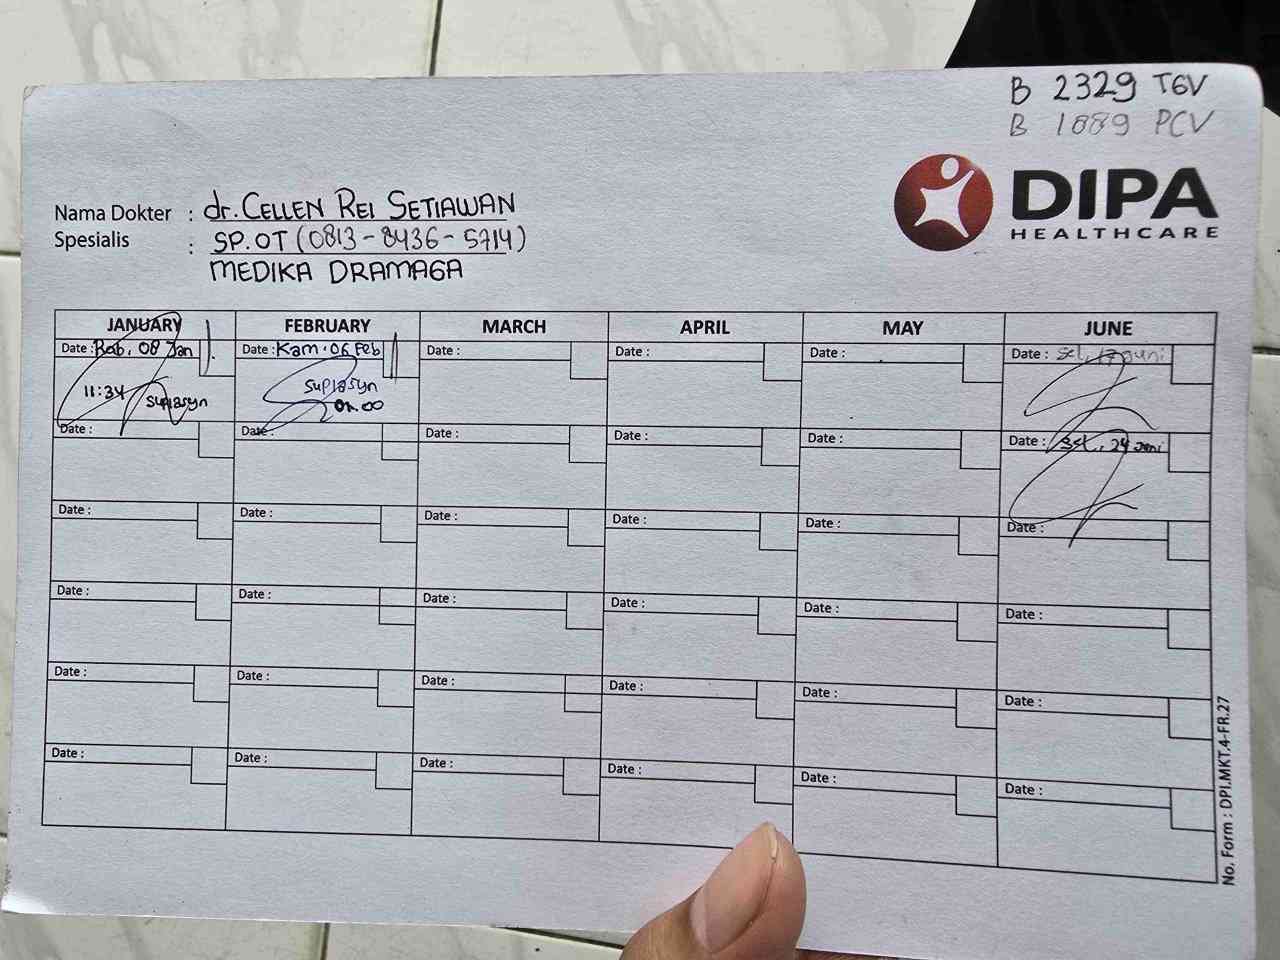 B 2329 TGV
B 1889 PCV
DIPA
HEALTHCARE
Nama Dokter : dr. CELLEN REI SETIAWAN
Spesialis : SP.OT (0813-8436-5714)
MEDIKA DRAMAGA
JANUARY FEBRUARY MARCH APRIL MAY JUNE
Date : Rab, 08 Jan Date : Kam. 06 Feb Date : Date : Date : Date : Sel, 17 Juni
11:34 Suplasyn
Suplasyn
Date : Date : Date : Date : Date : Date : Sel, 24 Juni
Date : Date : Date : Date : Date : Date :
Date : Date : Date : Date : Date : Date :
Date : Date : Date : Date : Date : Date :
Date : Date : Date : Date : Date : Date :
No. Form : DPI.MKT.4-FR.27